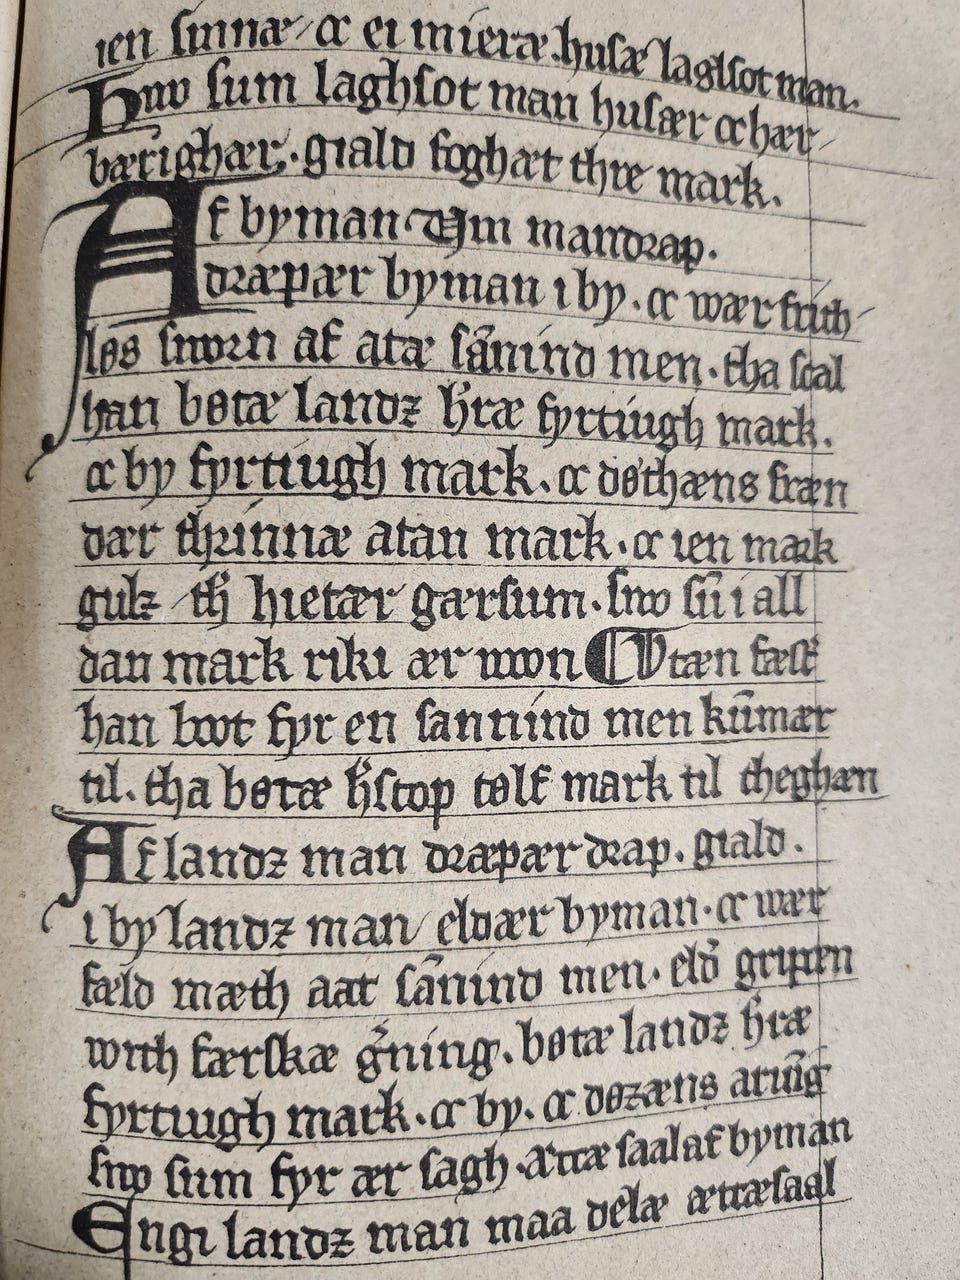 ien sinnæ ⁊ ei mieræ. husæ laghsot man.
Hwo sum laghsot man husær ⁊ hær-
bærighær. giald foghæt thre mark.
Af byman Um mandrap.
dræpær byman i by. ⁊ wær frith
løs sworn af ata sānind men. tha scal
han bøtæ landz h̓ræ fyrtiugh mark.
⁊ by fyrtiugh mark. ⁊ døthæns fræn
dær thrinnæ atan mark. ⁊ ien mark
gulz th̓ hietær gærsum. swo sū i all
dan mark riki ær uwon Utæn fæst̓
han boot fyr en sannind men kūmær
til. tha bøtæ b̓scop tølf mark til theghæn
Af landz man dræpær drap. giald.
i by landz man eldær byman. ⁊ wær
fæld mæth aat sānind men. eld̓ gripen
with færskæ g̓ning. bøtæ landz h̓ræ
fyrtiugh mark. ⁊ by. ⁊ døzæns aruīg
swo sum fyr ær sagh. ættæ saal af byman
Engi landz man maa delæ ættæsaal